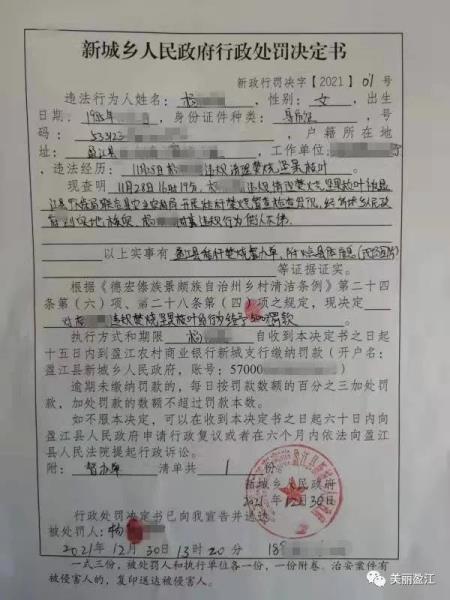 新城乡人民政府行政处罚决定书
新政行罚决字【2021】01号
违法行为人姓名：杨，性别：女，出生
日期：1985年，身份证件种类：身份证，号
码：53312，户籍所在地
址：盈江县，工作单位：
，违法经历：11月28日杨违规清理焚烧坚果枝叶
现查明 11月28日16时19分，杨违规清理焚烧坚果枝叶被盈
江县
到现地核实，杨违规行为
以上事实有 盈江县秸秆焚烧督办单，
等证据证实。
根据《德宏傣族景颇族自治州乡村清洁条例》第二十四
条第（六）项、第二十八条第（四）项之规定，现决定
对杨违规焚烧坚果枝叶的行为给予500罚款
执行方式和期限 杨自收到本决定书之日起
十五日内到盈江农村商业银行新城支行缴纳罚款（开户名：
盈江县新城乡人民政府，账号：57000
逾期未缴纳罚款的，每日按罚款数额的百分之三加处罚
款，加处罚款的数额不超过罚款本数。
如不服本决定，可以在收到本决定书之日起六十日内向
盈江县人民政府申请行政复议或者在六个月内依法向盈江
县人民法院提起行政诉讼。
附：督办单 清单共 1 份
新城乡人民政府
2021年12月30日
行政处罚决定书已向我宣告并送达
被处罚人：杨
2021年12月30日13时20分 18
一式三份，被处罚人和执行单位各一份，一份附卷。治安案件有
被侵害人的，复印送达被侵害人。
美丽盈江